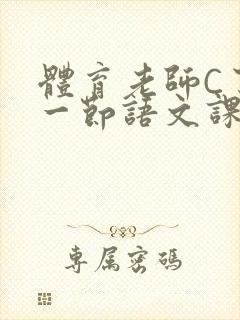 體育老師C
一節語文課
專属密碼